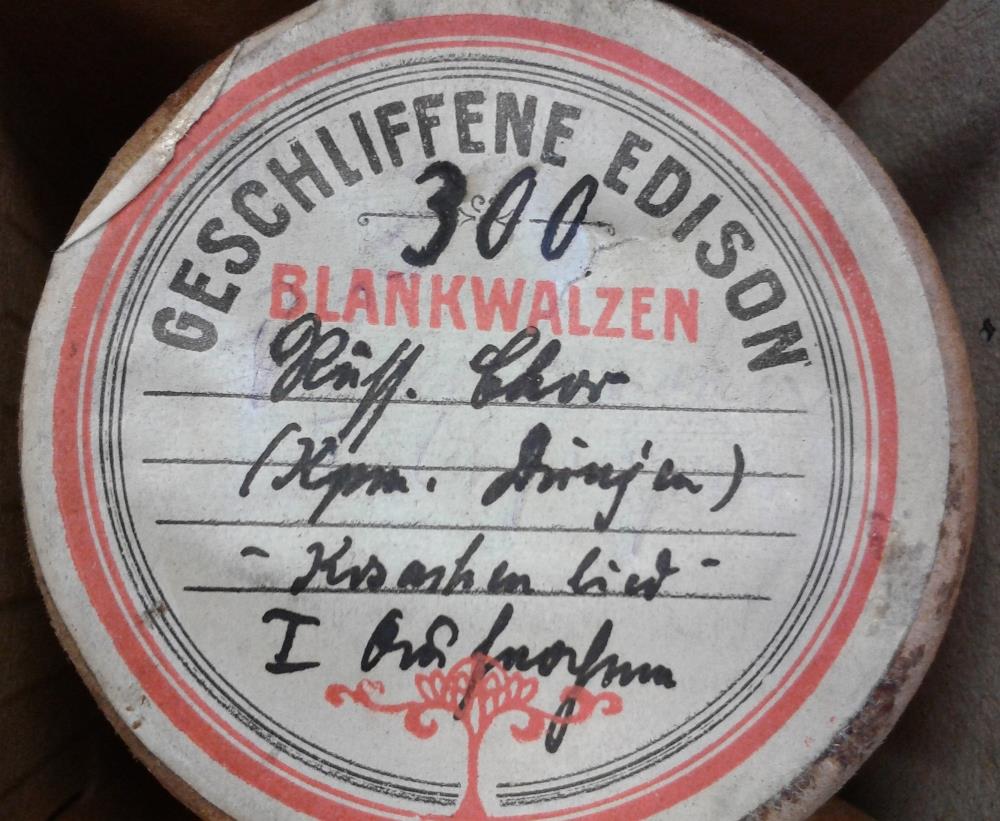 GESCHLIFFENE EDISON
300
BLANKWALZEN
Russ. Chor
(Kpm.
- Kosakenlied -
I Aufnahme